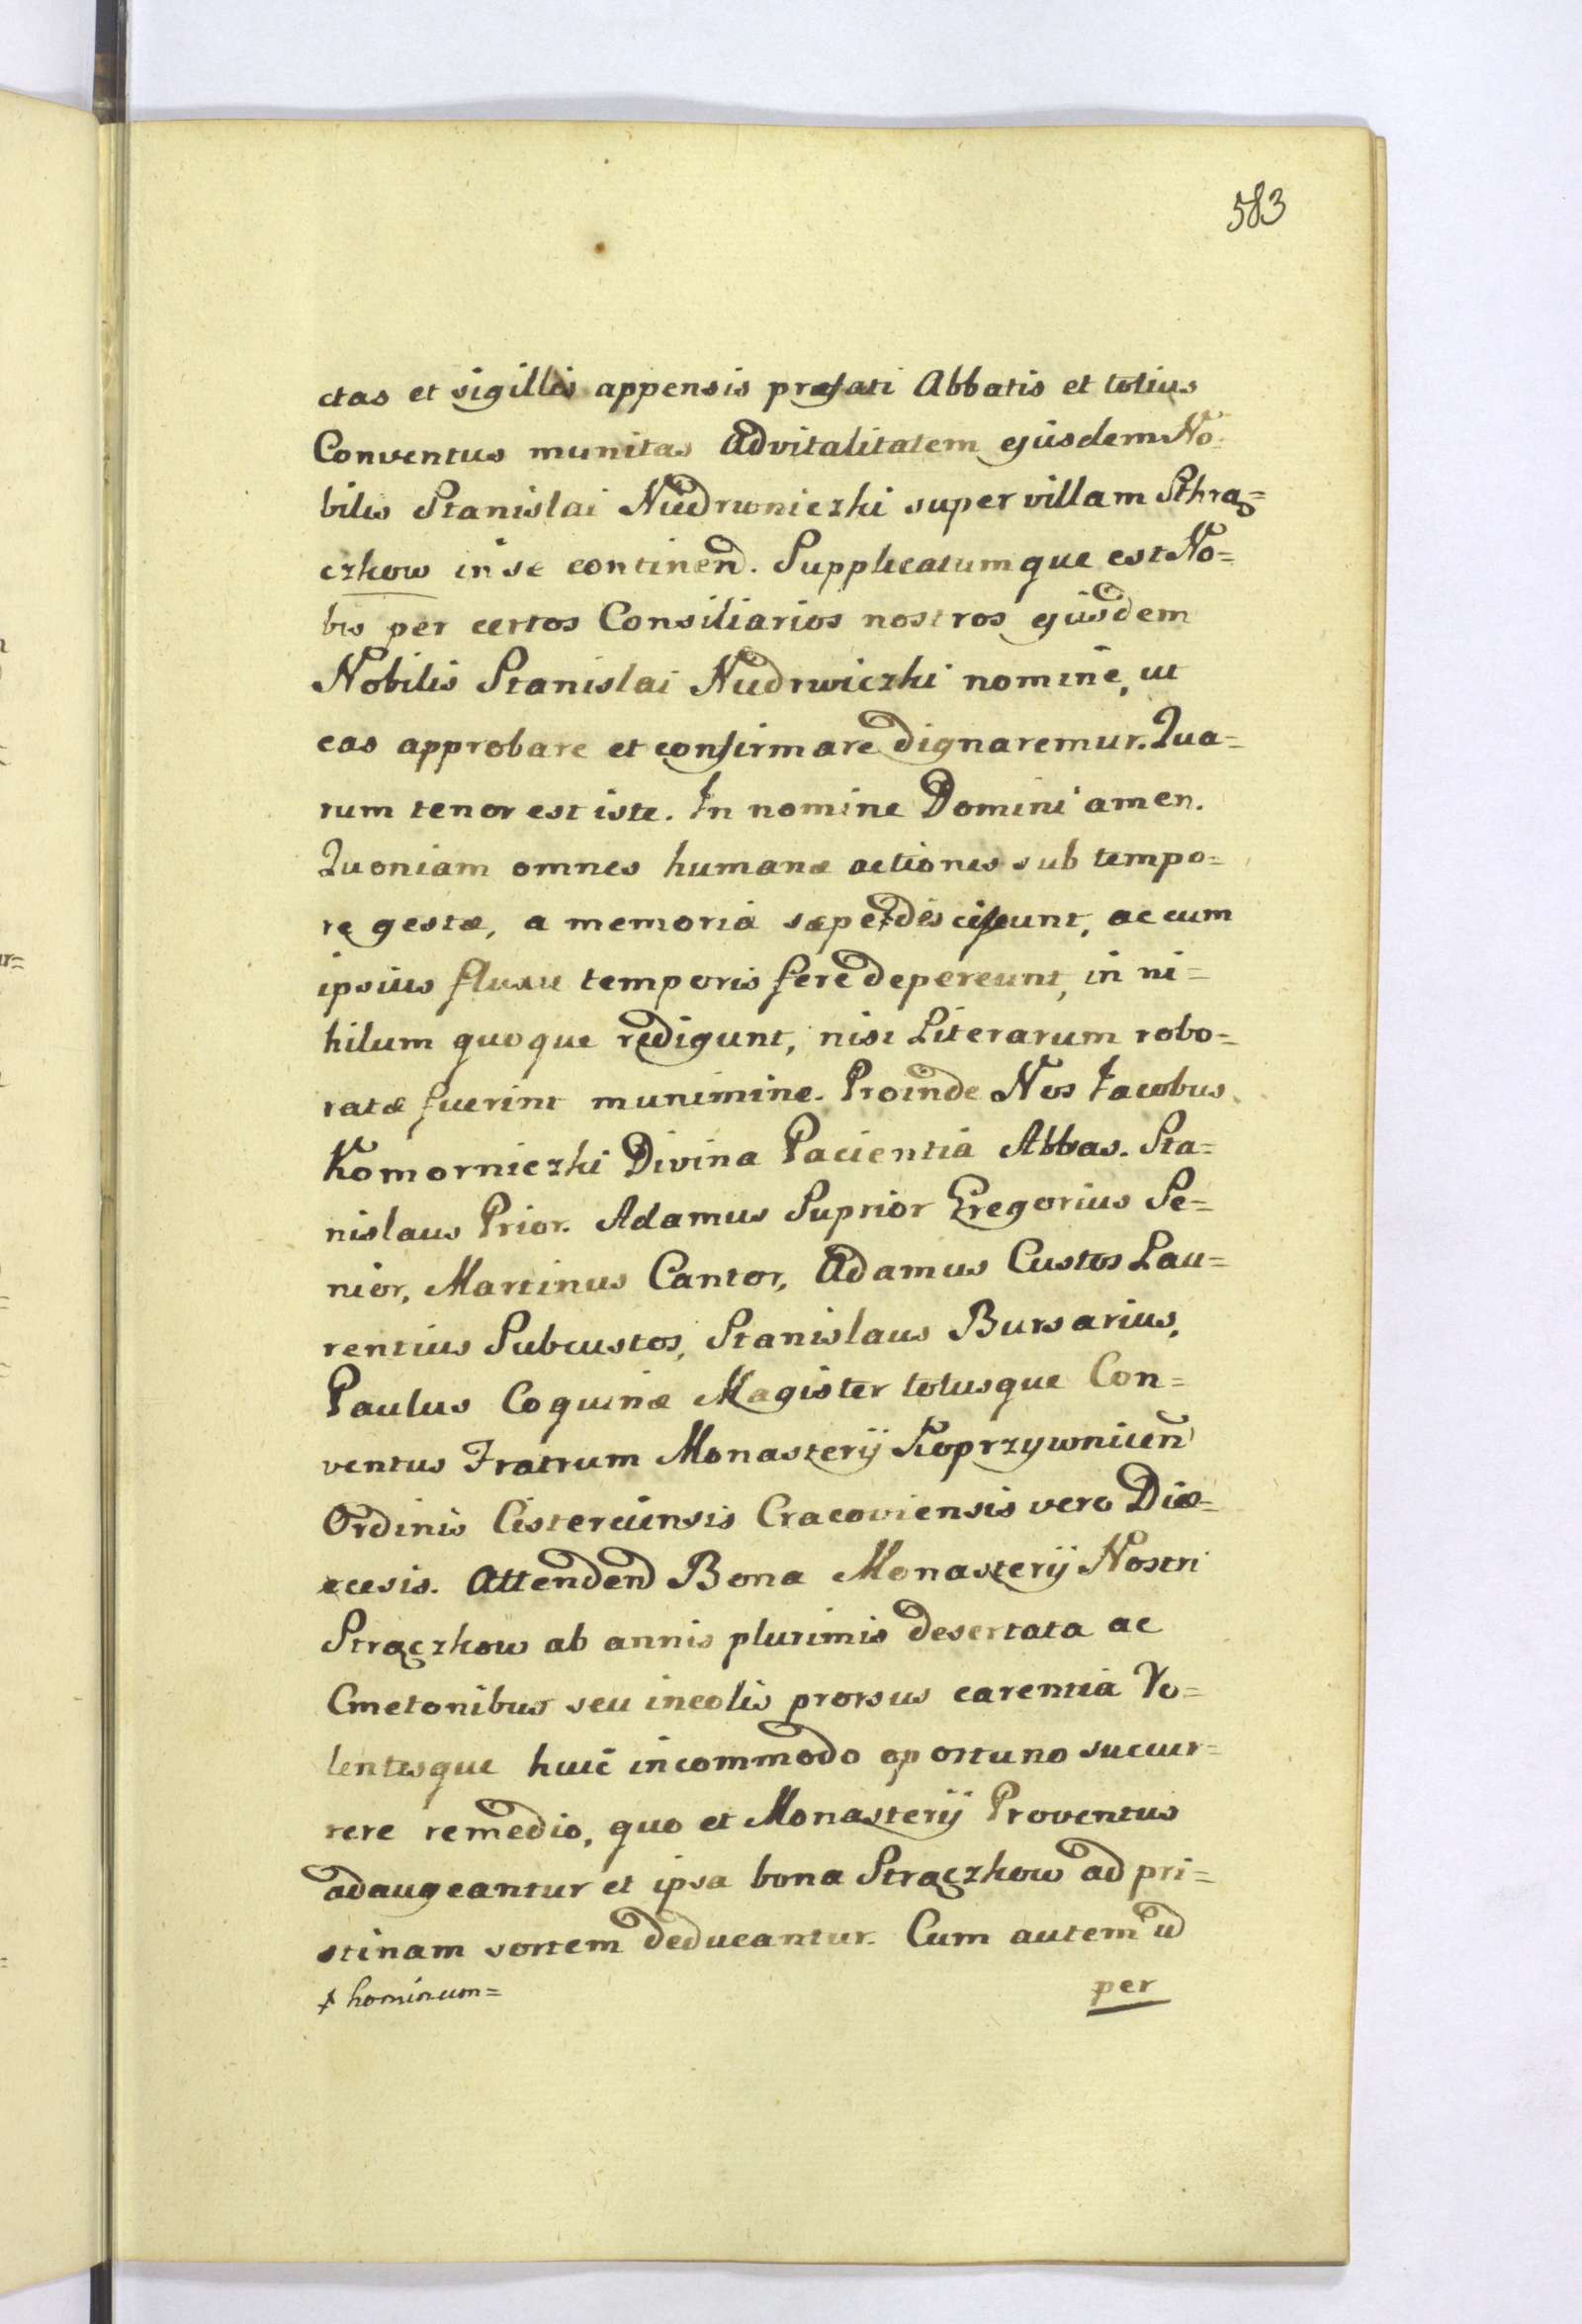 583
ctas et sigillis appensis præfati Abbatis et totius
Conventus munitas Advitalitatem ejusdem No-
bilis Stanislai Nudrwniczki super villam Sthrą=
czkow in se continen̄d. Supplicatumque est No=
bis per certos Consiliarios nostros ejusdem
Nobilis Stanislai Nudrwiczki nomine, ut
eas approbare et confirmare dignaremur. Qua=
rum tenor est iste. In nomine Domini amen.
Quoniam omnes humanæ actiones sub tempo=
re gestæ, a memoria sæpe ⨯ discisunt, ac cum
ipsius fluxu temporis fere depereunt, in ni=
hilum quoque redigunt, nisi Literarum robo=
ratæ fuerint munimine. Proinde Nos Jacobus
Komorniczki Divina Pacientia Abbas. Sta=
nislaus Prior. Adamus Suprior Gregorius Se=
nior, Martinus Cantor, Adamus Custos Lau=
rentius Subcustos, Stanislaus Bursarius,
Paulus Coquinæ Magister totusque Con=
ventus Fratrum Monasterij Koprzywnicen̄
Ordinis Cisterciensis Cracoviensis vero Diœ=
cesis. Attendend Bona Monasterij Nostri
Strączkow ab annis plurimis desertata ac
Cmetonibus seu incolis prorsus carentia Vo=
lentesque huic incommodo oportuno succur=
rere remedio, quo et Monasterij Proventus
adaugeantur et ipsa bona Strączkow ad pri=
stinam sortem deducantur. Cum autem id
⨯ hominum=
per